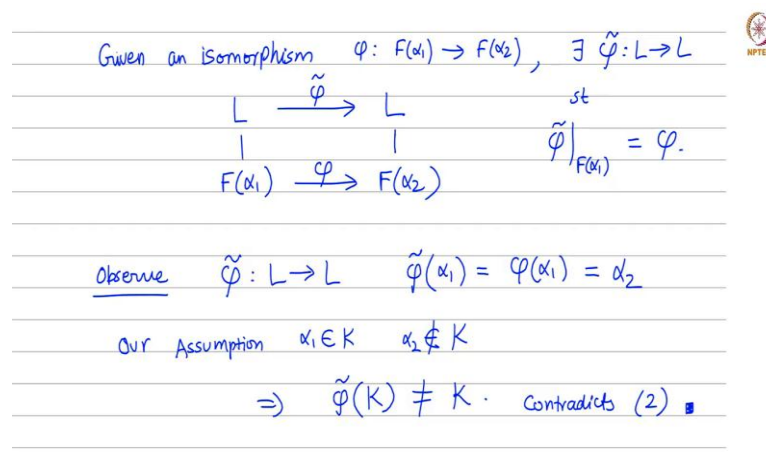 Given an isomorphism φ: F(α₁) → F(α₂), ∃ φ̃: L→L
L —φ̃→ L st
| | φ̃|F(α₁) = φ.
F(α₁) —φ→ F(α₂)
Observe φ̃ : L→L φ̃(α₁) = φ(α₁) = α₂
Our Assumption α₁ ∈ K α₂ ∉ K
⇒ φ̃(K) ≠ K. Contradicts (2) ▪
NPTE